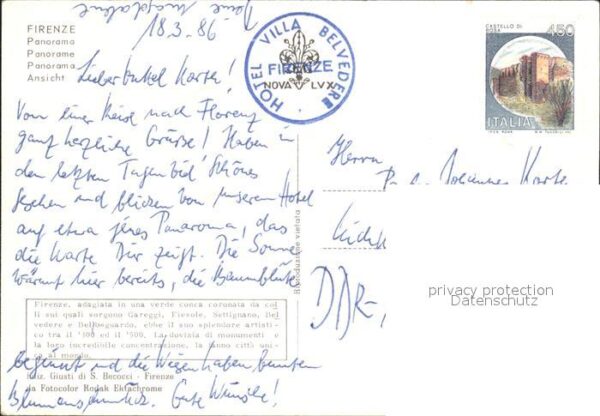 18.3.86
Deine Magdalene
FIRENZE
Panorama
Panorame
Panorama
Ansicht
HOTEL VILLA BELVEDERE
FIRENZE
NOVA LVX
CASTELLO DI
ROSA
450
ITALIA
Lieber Onkel Karte!
Von einer Reise nach Florenz
ganz herzliche Grüße! Haben in
den letzten Tagen viel Schönes
gesehen und blicken von unserem Hotel
auf etwa jenes Panorama, das
die Karte Dir zeigt. Die Sonne
wärmt hier bereits, die Baumblüte
beginnt und die Wiesen haben bunten
Blumenschmuck. Gute Wünsche!
Herrn
Johannes
DDR-
Riproduzione vietata
privacy protection
Datenschutz
Firenze, adagiata in una verde conca coronata da col
li sui quali sorgono Careggi, Fiesole, Settignano, Bel
vedere e Bellosguardo, ebbe il suo splendore artisti-
co tra il '400 ed il '500. La dovizia di monumenti e
la loro incredibile concentrazione, la fanno città uni-
ca al mondo.
Ediz. Giusti di S. Becocci - Firenze
da Fotocolor Kodak Ektachrome